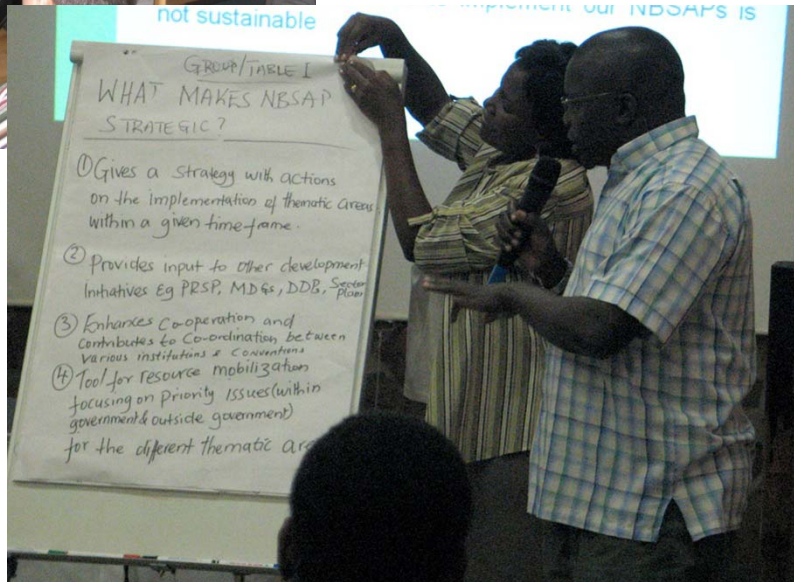 implement our NBSAPs is
not sustainable
GROUP/TABLE I
WHAT MAKES NBSAP
STRATEGIC?
① Gives a strategy with actions
on the implementation of thematic areas
within a given time-frame.
② Provides input to other development
Initiatives Eg PRSP, MDGs, DDP, Sector
Plans
③ Enhances Co-operation and
contributes to Co-ordination between
various institutions & Conventions
④ Tool for resource mobilization
focusing on Priority Issues (within
government & outside government)
for the different thematic